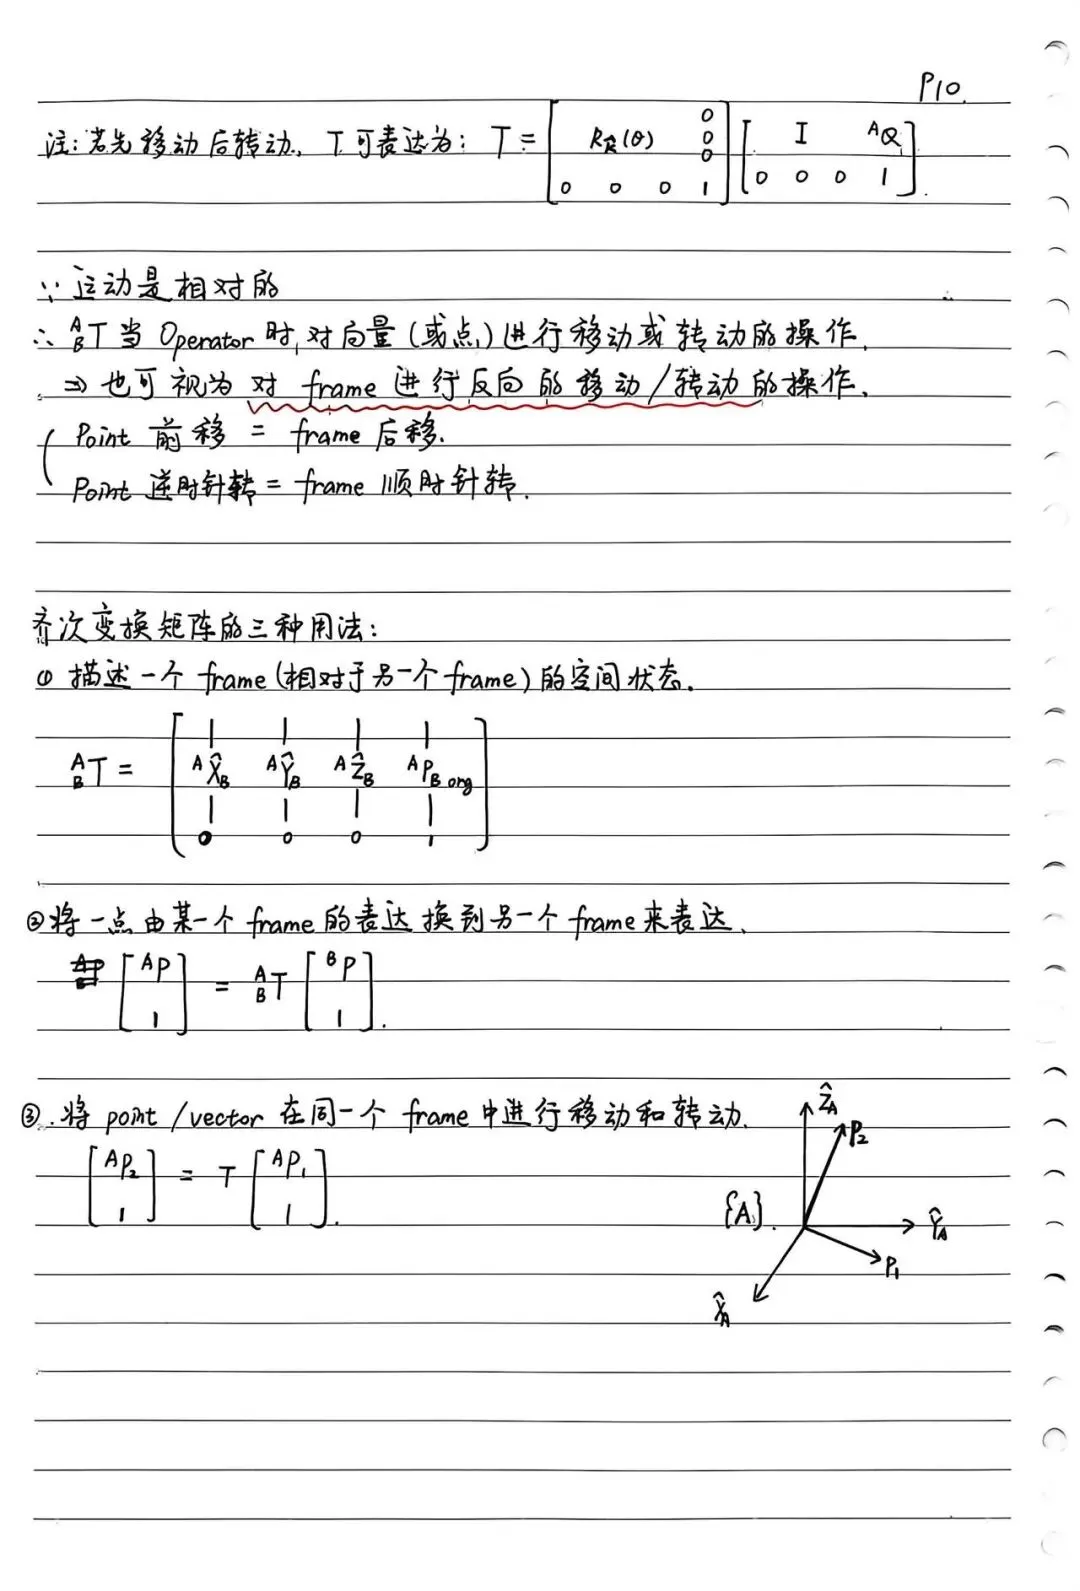 P10.
注:若先移动后转动, T可表达为: T = [ R_K̂(θ) 0 0 0 ; 0 0 0 1 ] [ I ᴬQ ; 0 0 0 1 ].
∵ 运动是相对的
∴ ᴬ_BT 当 Operator 时, 对向量(或点)进行移动或转动的操作.
⇒ 也可视为 对 frame 进行反向的移动/转动的操作.
Point 前移 = frame 后移.
Point 逆时针转 = frame 顺时针转.
齐次变换矩阵的三种用法:
① 描述一个 frame (相对于另一个 frame) 的空间状态.
ᴬ_BT = [ | | | | ; ᴬX̂_B ᴬŶ_B ᴬẐ_B ᴬP_B org ; | | | | ; 0 0 0 1 ]
②将一点由某一个 frame 的表达换到另一个 frame 来表达.
[ ᴬP ; 1 ] = ᴬ_BT [ ᴮP ; 1 ].
③.将 point /vector 在同一个 frame 中进行移动和转动.
[ ᴬP₂ ; 1 ] = T [ ᴬP₁ ; 1 ].
Ẑ_A
P₂
{A}.
Ŷ_A
P₁
X̂_A